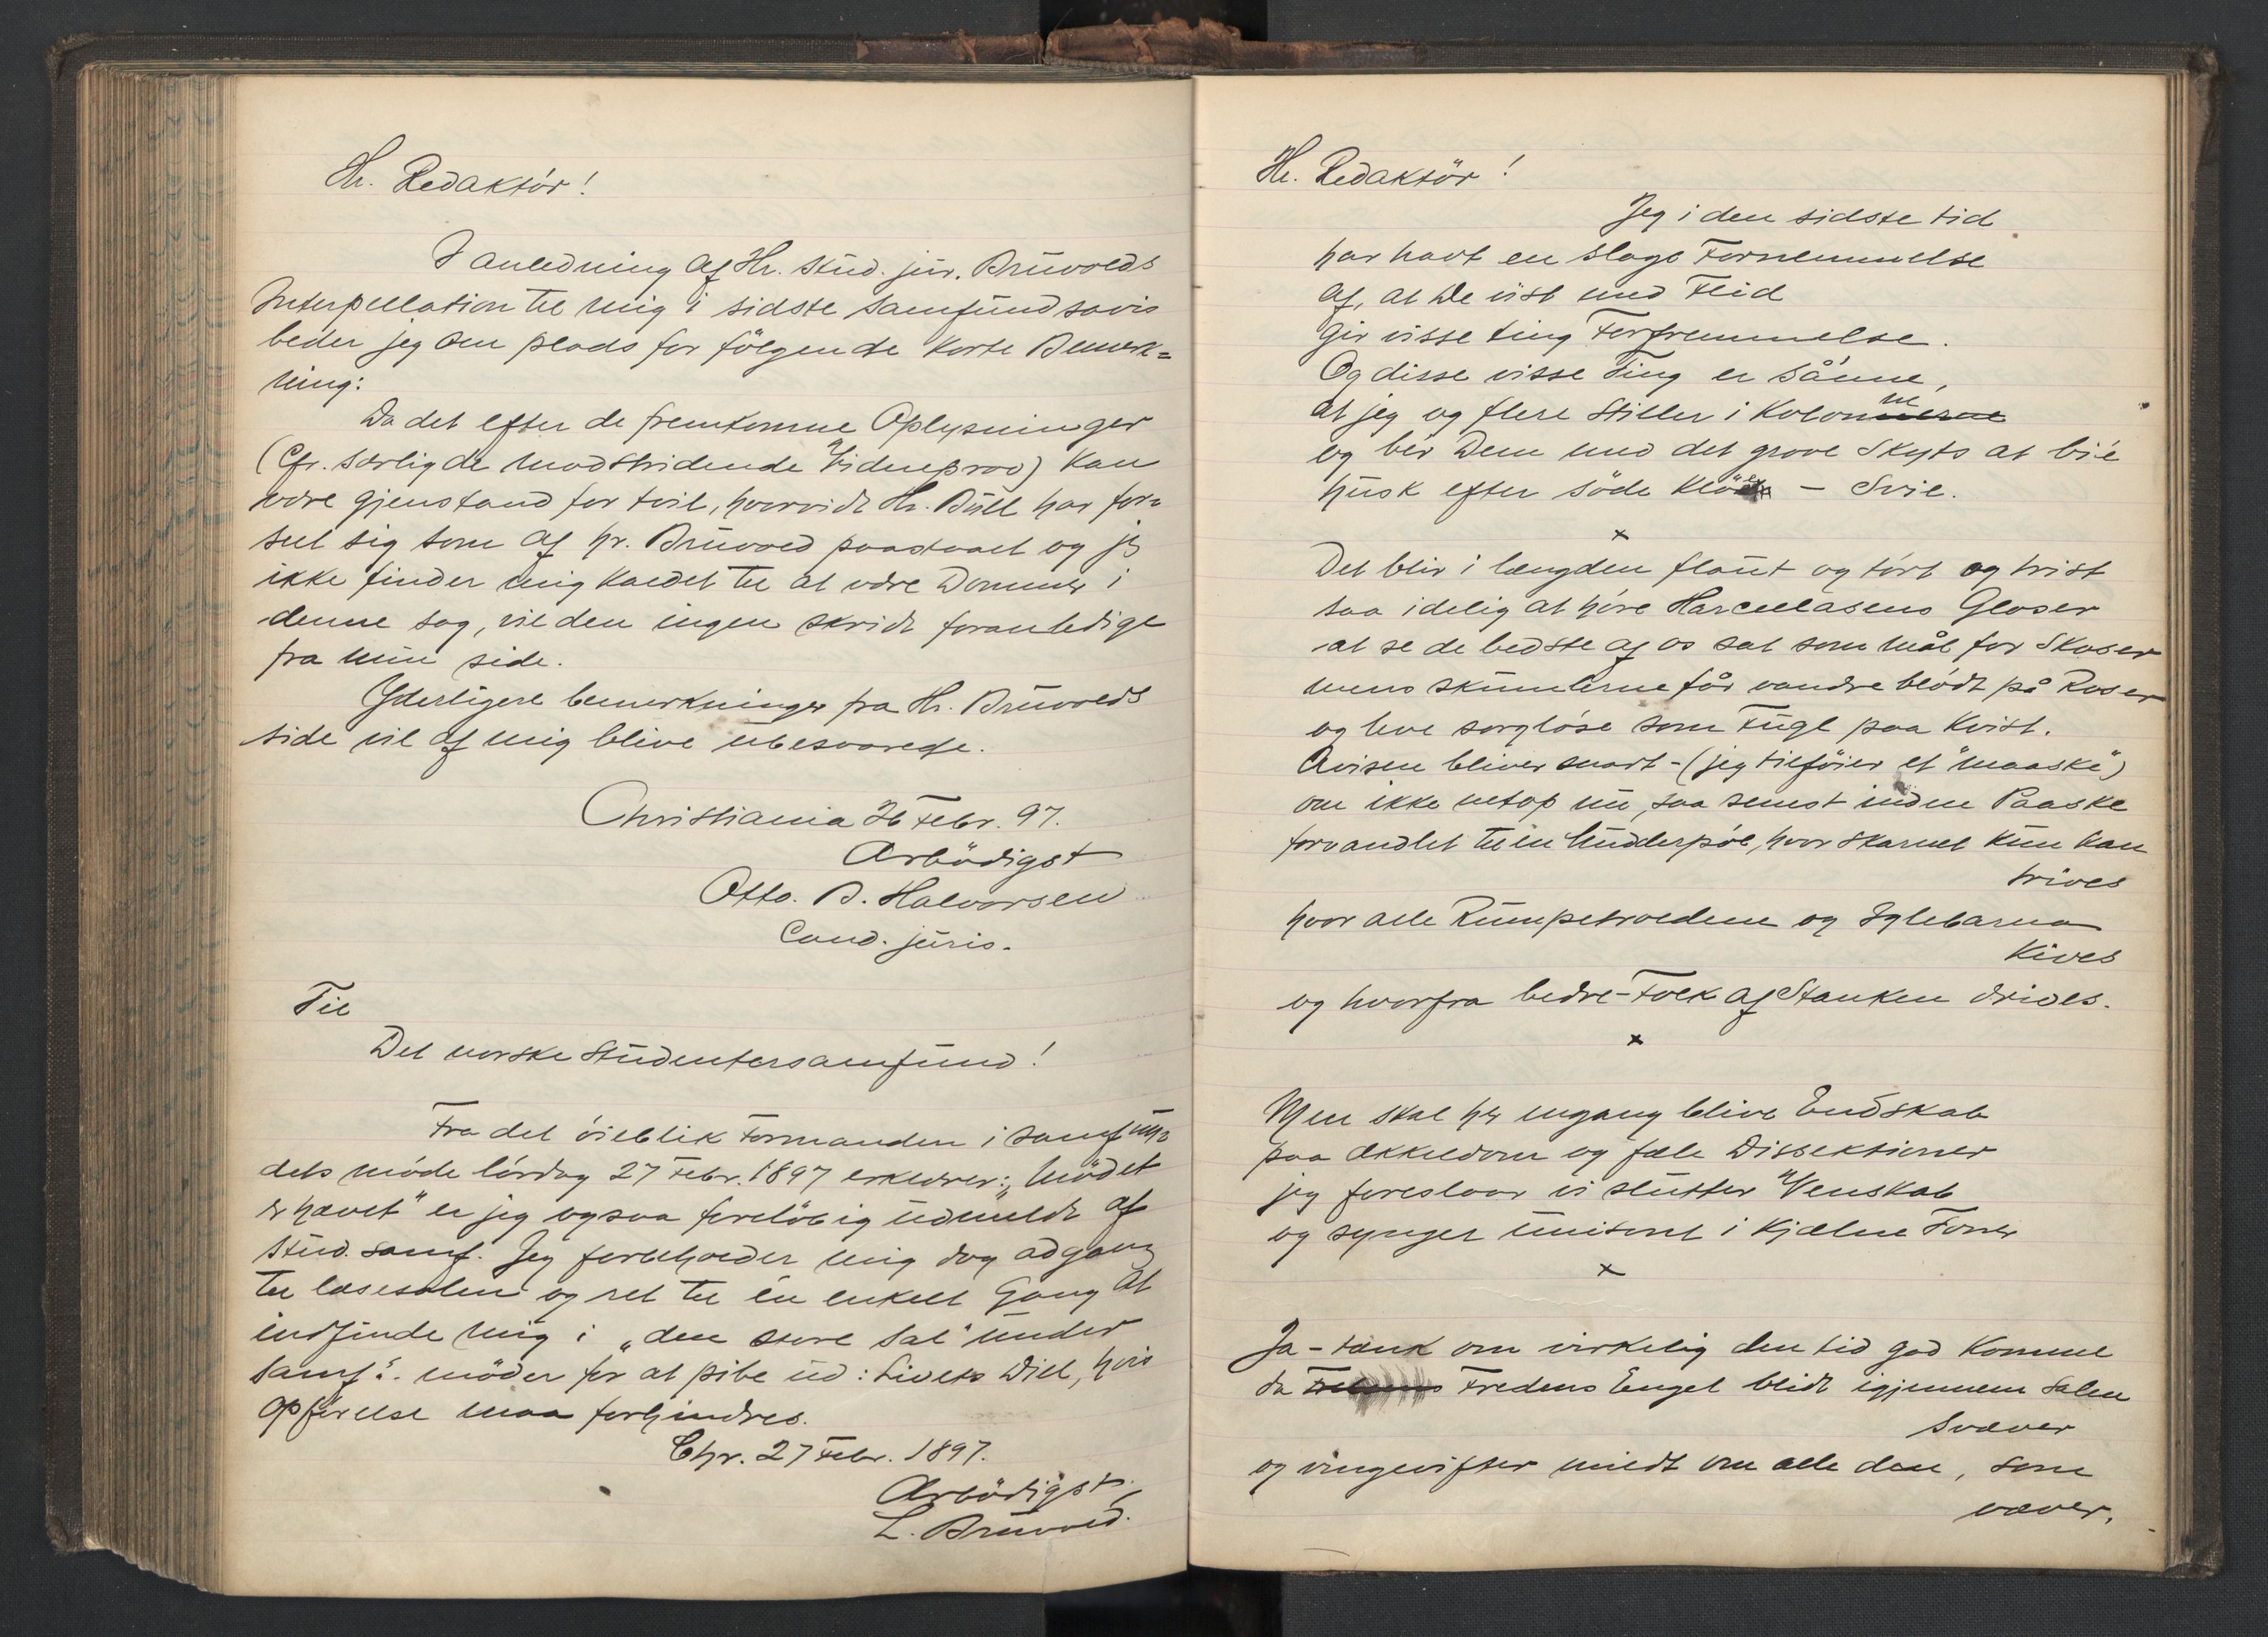 Hr. Redaktör!
I anledning af Hr. stud. jur. Bruvolds
Interpellation til mig i sidste samfundsavis
beder jeg om plads for fölgende korte Bemerk=
ning:
Da det efter de fremkomne Oplysninger
(Cfr. særlig de modstridende Vidneprov) kan
være gjenstand for tvil, hvorvidt Hr. Bull har for=
set sig som af hr. Bruvold paastaaet og jeg
ikke finder mig kaldet til at være Dommer i
denne sag, vil den ingen skridt foranledige
fra min side.
Yderligere bemerkninger fra Hr. Bruvolds
side vil af mig blive ubesvarede.
Christiania 26 Febr. 97.
Ærbödigst
Otto. B. Halvorsen
Cand. juris.
Til
Det norske Studentersamfund!
Fra det öieblik Formanden i samfun=
dets möde lördag 27 Febr. 1897 erklærer: „Mödet
er hævet" er jeg ogsaa foreløbig udmeldt af
Stud. samf. Jeg forbeholder mig dog adgang
til læsesalen og ret til én enkelt Gang at
indfinde mig i „den store Sal" under
samf.s möder for at pibe ud: Livets Will, hvis
Opförelse maa forhindres.
Chr. 27 Febr. 1897.
Ærbödigst,
L. Bruvold.
Hr. Redaktör!
Jeg i den sidste tid
har havt en slags Fornemmelse
af, at De vist med Flid
gir visse ting Forfremmelse.
Og disse visse Ting er sånne,
at jeg og flere stiller i Kolonne
og bér Dem med det grove Skyts at bie
husk efter söde Klöe – Svie.
x
Det blir i længden flaut og tört og trist
saa idelig at höre Marcellasens Gloser
at se de bedste af os sat som mål for Skoser
mens skumlerne får vandre blödt på Roser
og leve sorglöse som Fugl paa Kvist.
Avisen bliver snart – (jeg tilföier et "maaske")
om ikke netop nu, saa senest inden Paaske
forvandlet til en Mudderpöl, hvor Skarnet kun kan
trives
hvor alle Rumpetroldene og Iglebarna
kives
og hvorfra bedre-Folk af Stanken drives.
x
Men skal her engang blive Endskab
paa Ækkeldom og fæle Dissektioner
jeg foreslaar vi slutter "Venskab
og synger unisont i kjælne Toner
x
Ja – tænk om virkelig den tid gad komme
da Fredens Engel blidt igjennem Salen
Svæver
og vingevifter mildt om alle dem, som
væver.